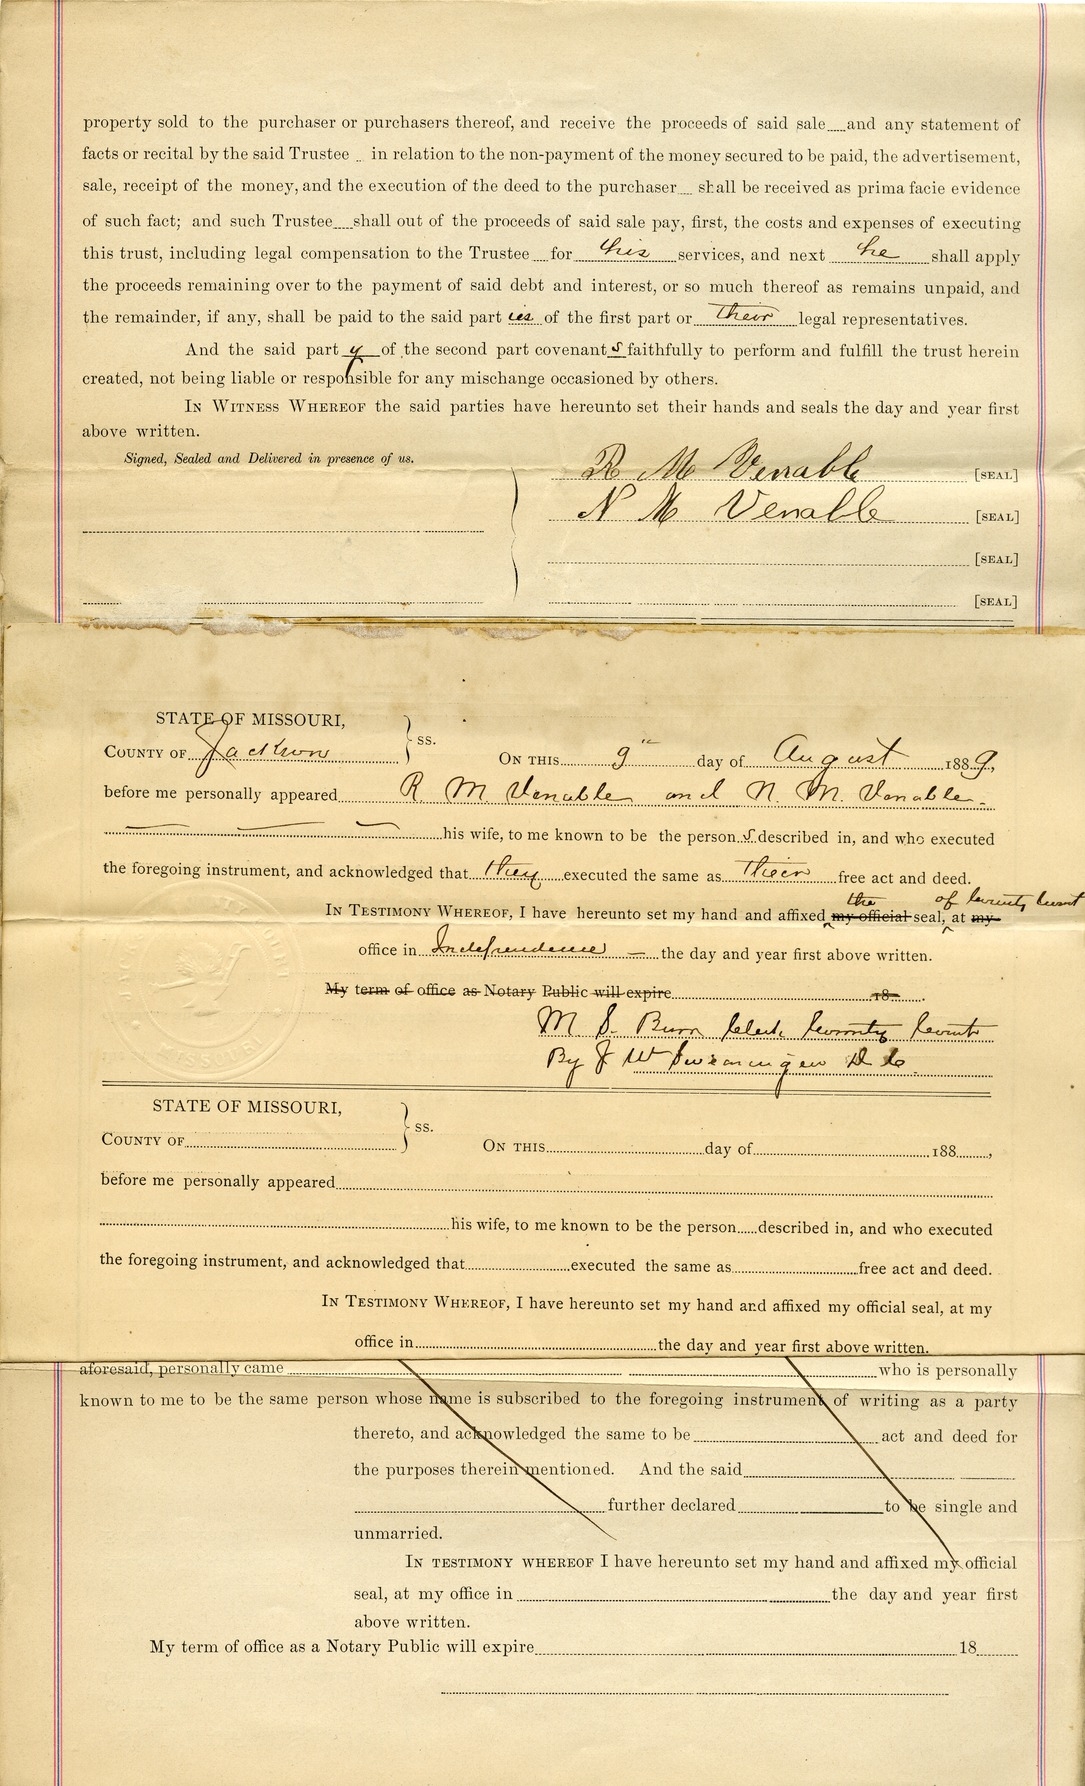 property sold to the purchaser or purchasers thereof, and receive the proceeds of said sale and any statement of
facts or recital by the said Trustee in relation to the non-payment of the money secured to be paid, the advertisement,
sale, receipt of the money, and the execution of the deed to the purchaser shall be received as prima facie evidence
of such fact; and such Trustee shall out of the proceeds of said sale pay, first, the costs and expenses of executing
this trust, including legal compensation to the Trustee for his services, and next he shall apply
the proceeds remaining over to the payment of said debt and interest, or so much thereof as remains unpaid, and
the remainder, if any, shall be paid to the said part ies of the first part or their legal representatives.
And the said part y of the second part covenant s faithfully to perform and fulfill the trust herein
created, not being liable or responsible for any mischange occasioned by others.
IN WITNESS WHEREOF the said parties have hereunto set their hands and seals the day and year first
above written.
Signed, Sealed and Delivered in presence of us.
R M Venable [SEAL]
N M Venable [SEAL]
[SEAL]
[SEAL]
STATE OF MISSOURI,
COUNTY OF Jackson } ss. ON THIS 9th day of August 1889,
before me personally appeared R. M. Venable and N. M. Venable
his wife, to me known to be the person s described in, and who executed
the foregoing instrument, and acknowledged that they executed the same as their free act and deed.
the of County Court
IN TESTIMONY WHEREOF, I have hereunto set my hand and affixed my official seal, at my
office in Independence the day and year first above written.
My term of office as Notary Public will expire 18
M. S. Burr Clerk County Court
By J W Swearingen D C
STATE OF MISSOURI,
COUNTY OF } ss. ON THIS day of 188 ,
before me personally appeared
his wife, to me known to be the person described in, and who executed
the foregoing instrument, and acknowledged that executed the same as free act and deed.
IN TESTIMONY WHEREOF, I have hereunto set my hand and affixed my official seal, at my
office in the day and year first above written.
aforesaid, personally came who is personally
known to me to be the same person whose name is subscribed to the foregoing instrument of writing as a party
thereto, and acknowledged the same to be act and deed for
the purposes therein mentioned. And the said
further declared to be single and
unmarried.
IN TESTIMONY WHEREOF I have hereunto set my hand and affixed my official
seal, at my office in the day and year first
above written.
My term of office as a Notary Public will expire 18